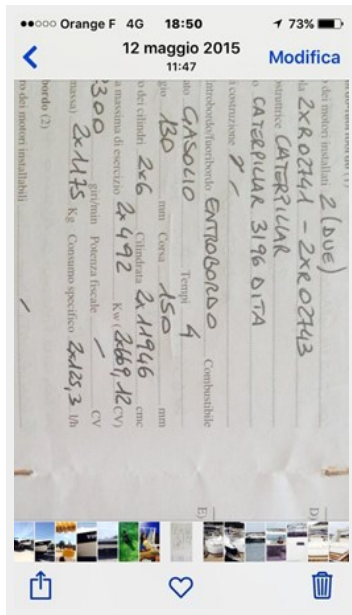 Orange F 4G 18:50 73%
12 maggio 2015
11:47
Modifica
o dei motori installati 2 (DUE)
la 2XR02741 - 2XR02743
struttrice CATERPILLAR
o CATERPILLAR 3196 DITA
i costruzione
ntrobordo/fuoribordo ENTROBORDO Combustibile
GASOLIO Tempi 4
gio 130 mm Corsa 150 mm
o dei cilindri 2x6 Cilindrata 2x11946 cmc
a massima di esercizio 2x492 Kw (2x669,12 CV)
2300 giri/min Potenza fiscale / CV
massa) 2x1175 Kg Consumo specifico 2x125,3 l/h
bordo (2)
ro dei motori installabili /
D)
E)